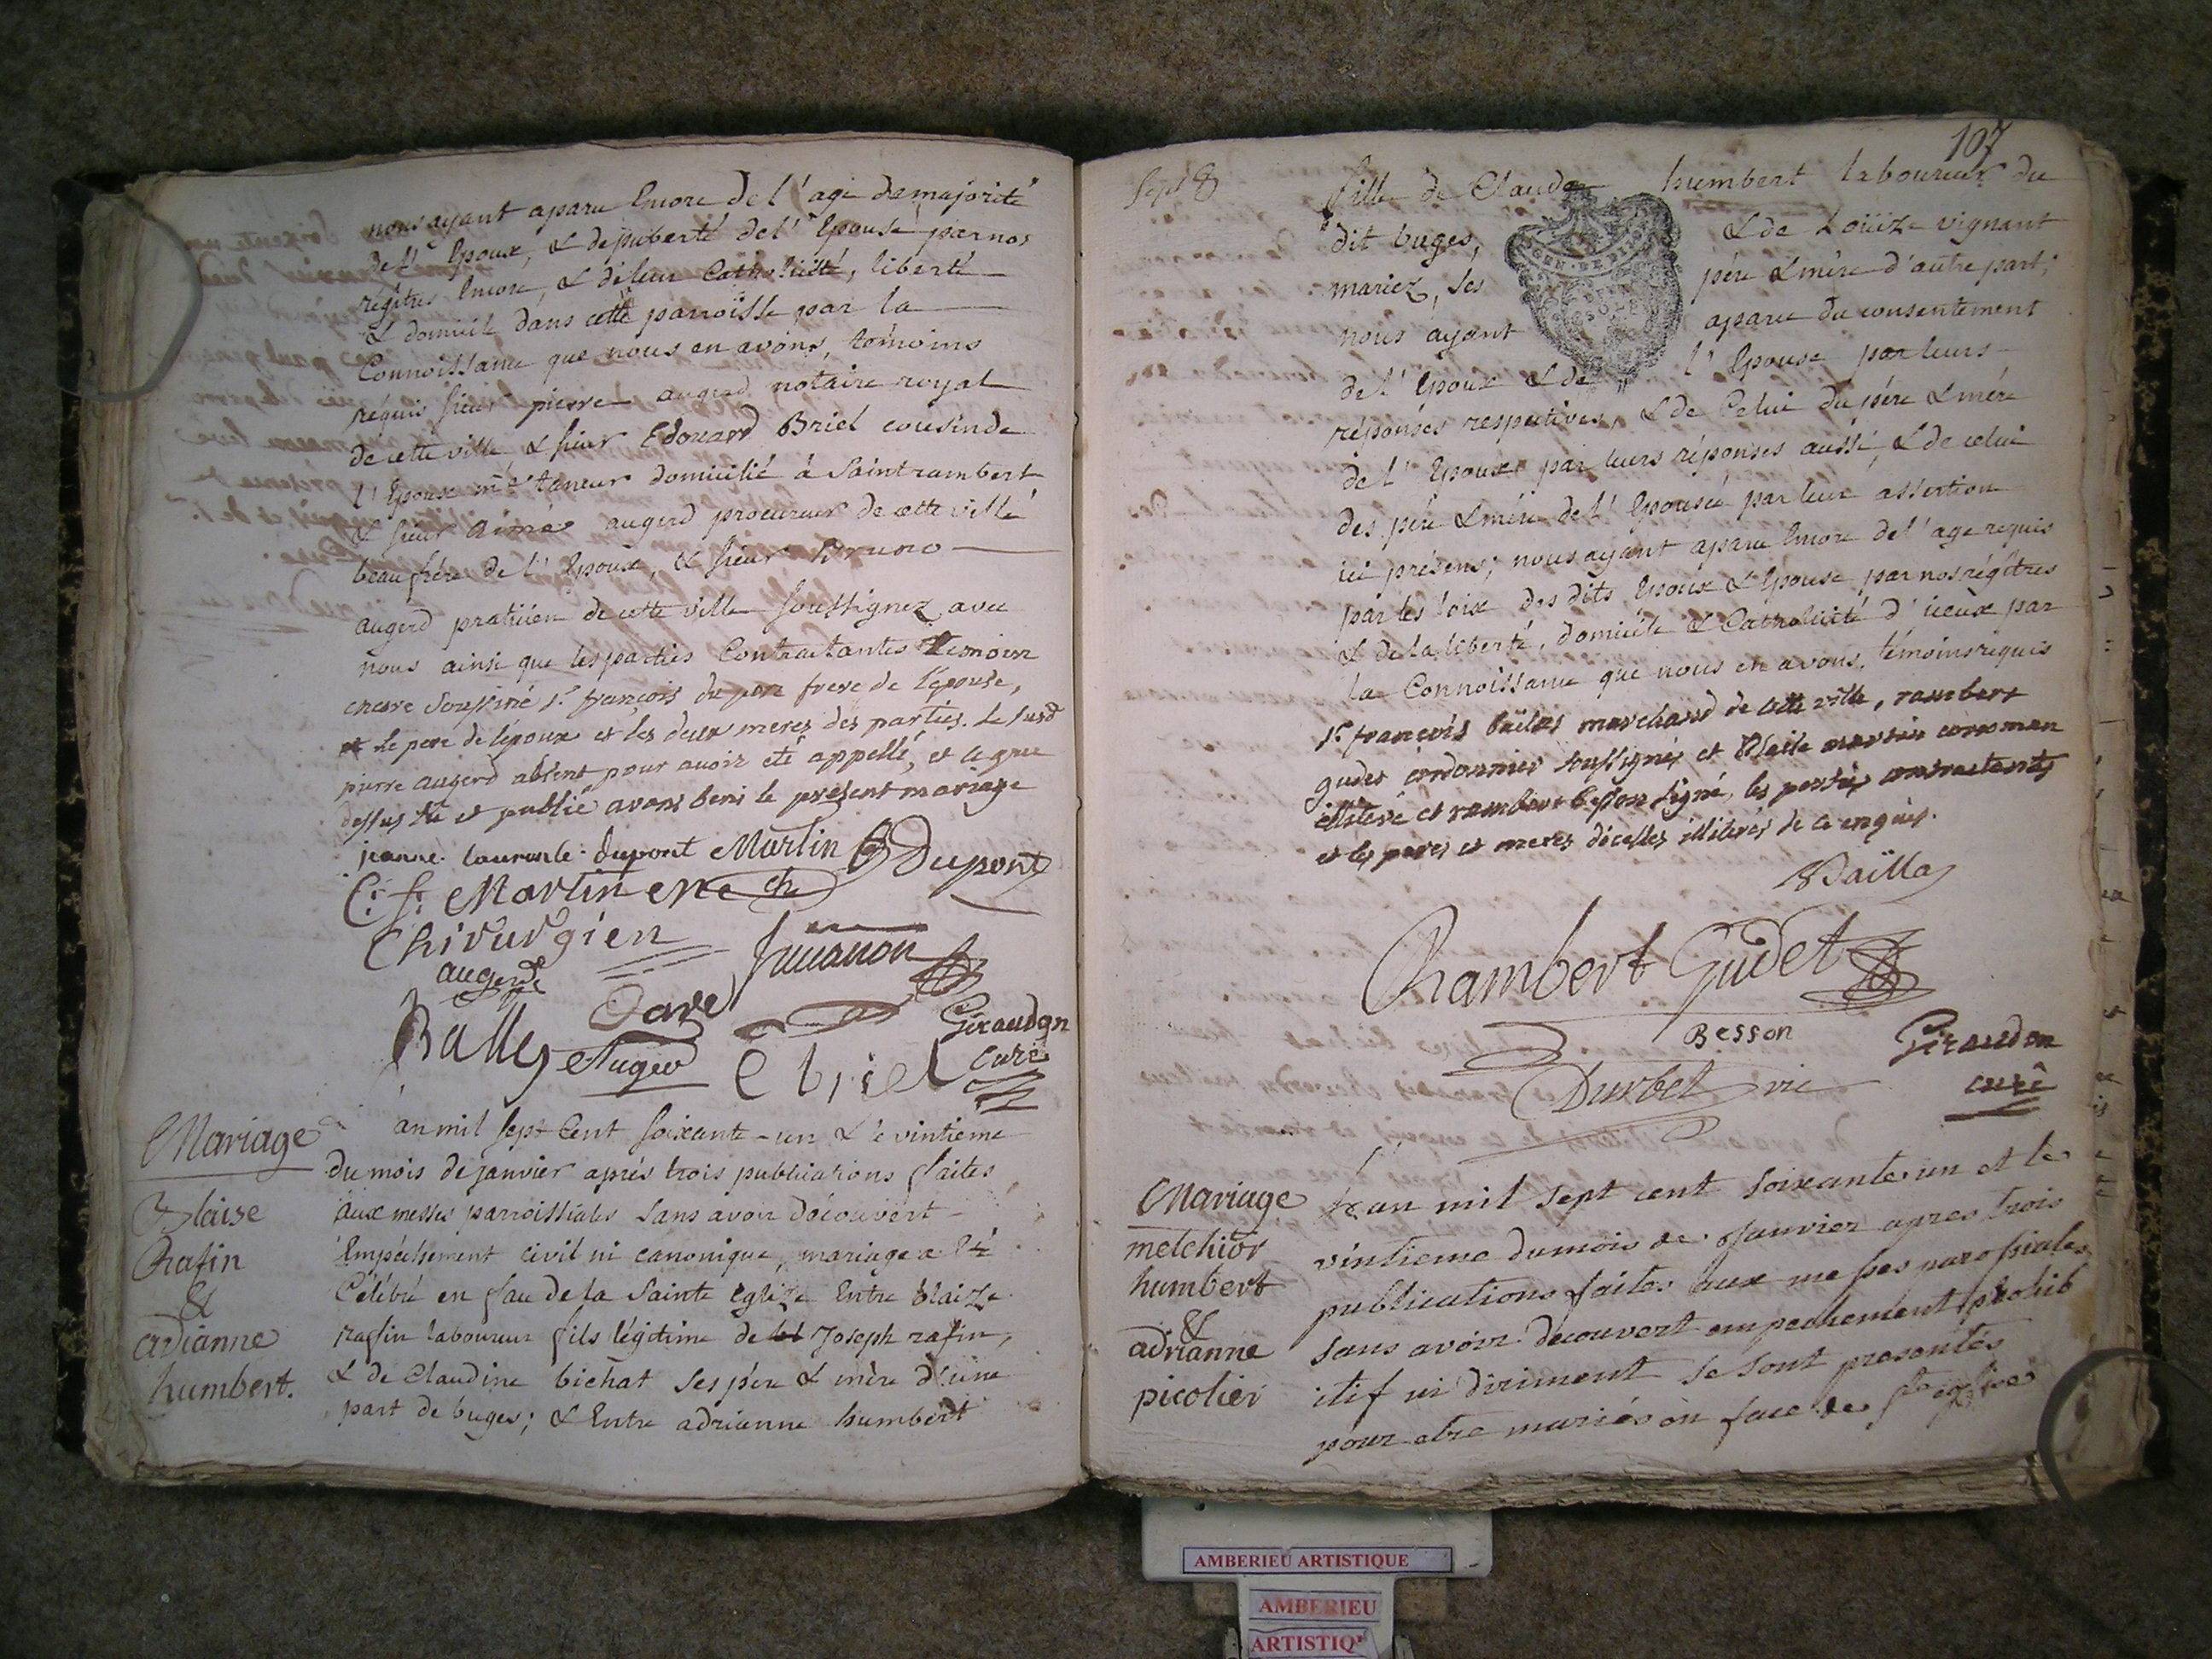 nous ayant aparu Encore de l'age de majorité
de l'Epoux, & de puberté de l'Epouse par nos
régitres Encore, & de leur Catholicité, liberté
& domicile dans cette parroisse par la
Connoissance que nous en avons, témoins
requis sieur pierre augerd notaire royal
de cette ville & sieur Edouard Briel cousin de
l'Epouse me taneur domicilié à Saint rambert
& sieur Aimé augerd procureur de cette ville
beaufrére de l'Epoux, & sieur Bruno
augerd praticien de cette ville soussignez avec
nous ainsi que les parties Contractantes temoin
encore soussiné sr. françois dupon frere de l'épouse,
le pere de lépoux et les deux meres des parties. le susd
pierre augerd absent pour avoir été appellé, et ce que
dessus lu et publié avons beni le present mariage
jeanne laurante dupont Martin Dupont
C. f. Martin me ch
Chirurgien
augerd
Bally Augerd Ebriel
Giraudon
curé
Mariage
Blaise
Rafin
&
adrianne
humbert.
L'an mil sept Cent soixante-un & le vintieme
du mois de janvier aprés trois publications faites
aux messes parroissiales sans avoir découvert
Empéchement civil ni canonique, mariage a Eté
Célébré en face de la Sainte Eglize Entre blaize
rafin laboureur fils légitime de Joseph rafin,
& de Claudine bichat ses pére & mère d'une
part de buges; & Entre adrianne humbert
107
Sept 8
fille de Claude humbert laboureur du
dit buges, & de Loüize vignant
mariez, ses pére & mère d'autre part;
nous ayant aparu du consentement
de l'Epoux & de l'Epouse par leurs
réponses respectives, & de Celui du pére & mére
de l'Epoux par leurs réponses aussi, & de celui
des pére & mére de l'Epouse par leur assertion
ici présens; nous ayant aparu Encore de l'age requis
par les loix des dits Epoux & Epouse par nos régitres
& de la liberté, domicile & Catholicité d'iceux par
la Connoissance que nous en avons, témoins requis
sr. françois bailas marchand de cette ville, rambert
gudet cordonnier soussignés et blaise
illiteré et rambert besson signé, les parties contractantes
et les peres et meres dicelles illiterés de ce enquis.
Bailla
Chambert Gudet
Besson
Durbet vic
Giraudon
curé
Mariage
melchior
humbert
&
adrianne
picolier
L'an mil sept cent soixante un et le
vintieme du mois de Janvier apres trois
publications faites aux messes parossiales
sans avoir decouvert empechement prohib
itif ni diriment se sont presentés
pour etre mariés en face de ste eglise
AMBERIEU ARTISTIQUE
AMBERIEU
ARTISTIQ